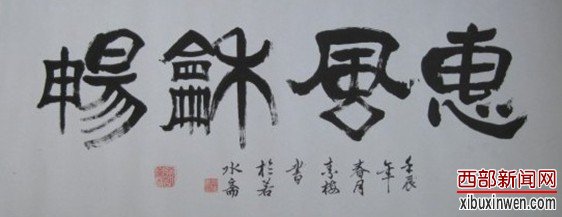 惠風龢暢
壬辰
年
春月
素梅
書
於若
水齋
西部新闻网
xibuxinwen.com